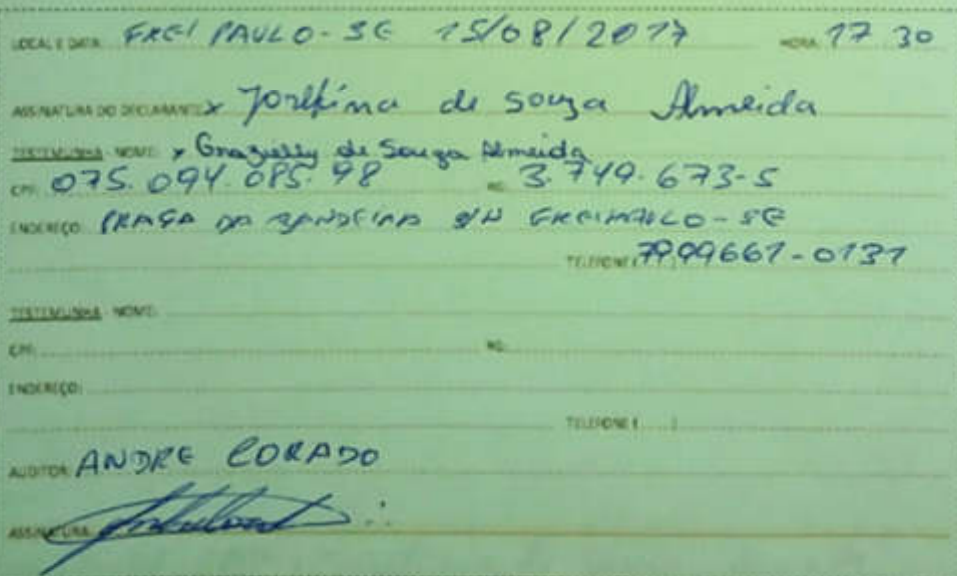 LOCAL E DATA: FREI PAULO-SE 15/08/2017 HORA: 17 30
ASSINATURA DO DECLARANTE: x Josefina de souza Almeida
TESTEMUNHA - NOME: x Grazielly de Souza Almeida
CPF: 075.094.085.98 RG: 3.749.673-5
ENDEREÇO: PRAÇA DA BANDEIRA S/N FREI PAULO-SE
TELEFONE ( ) 7999661-0131
TESTEMUNHA - NOME:
CPF: RG:
ENDEREÇO:
TELEFONE ( )
AUDITOR: ANDRE CORADO
ASSINATURA: